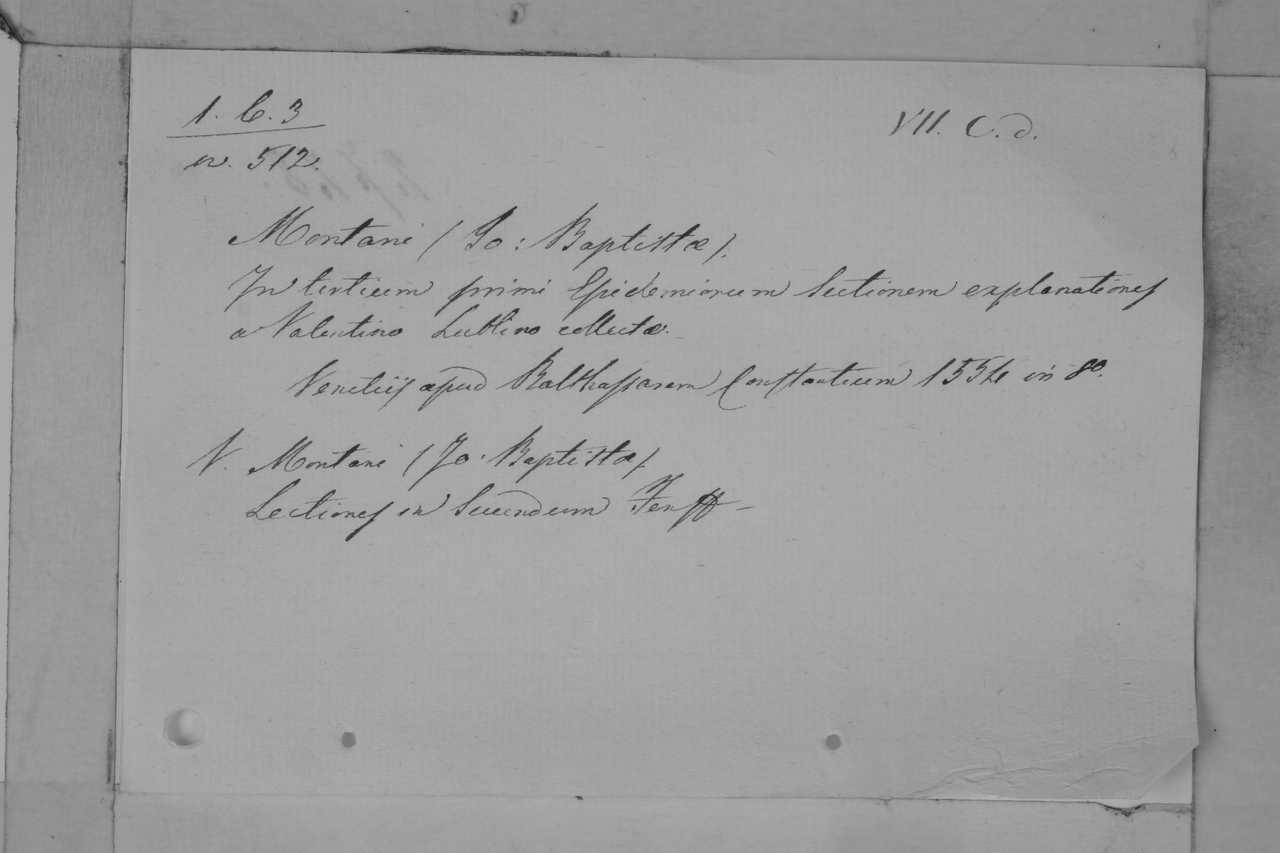 1. C. 3
n. 512.
VII. C. d.
Montani (Jo: Baptistæ).
In tertium primi Epidemiorum Sectionem explanationes
a Valentino Lublino collectæ.
Venetiis apud Balthassarem Constantium 1554 in 8º.
V. Montani (Jo: Baptistæ).
Lectiones in Secundum Fen